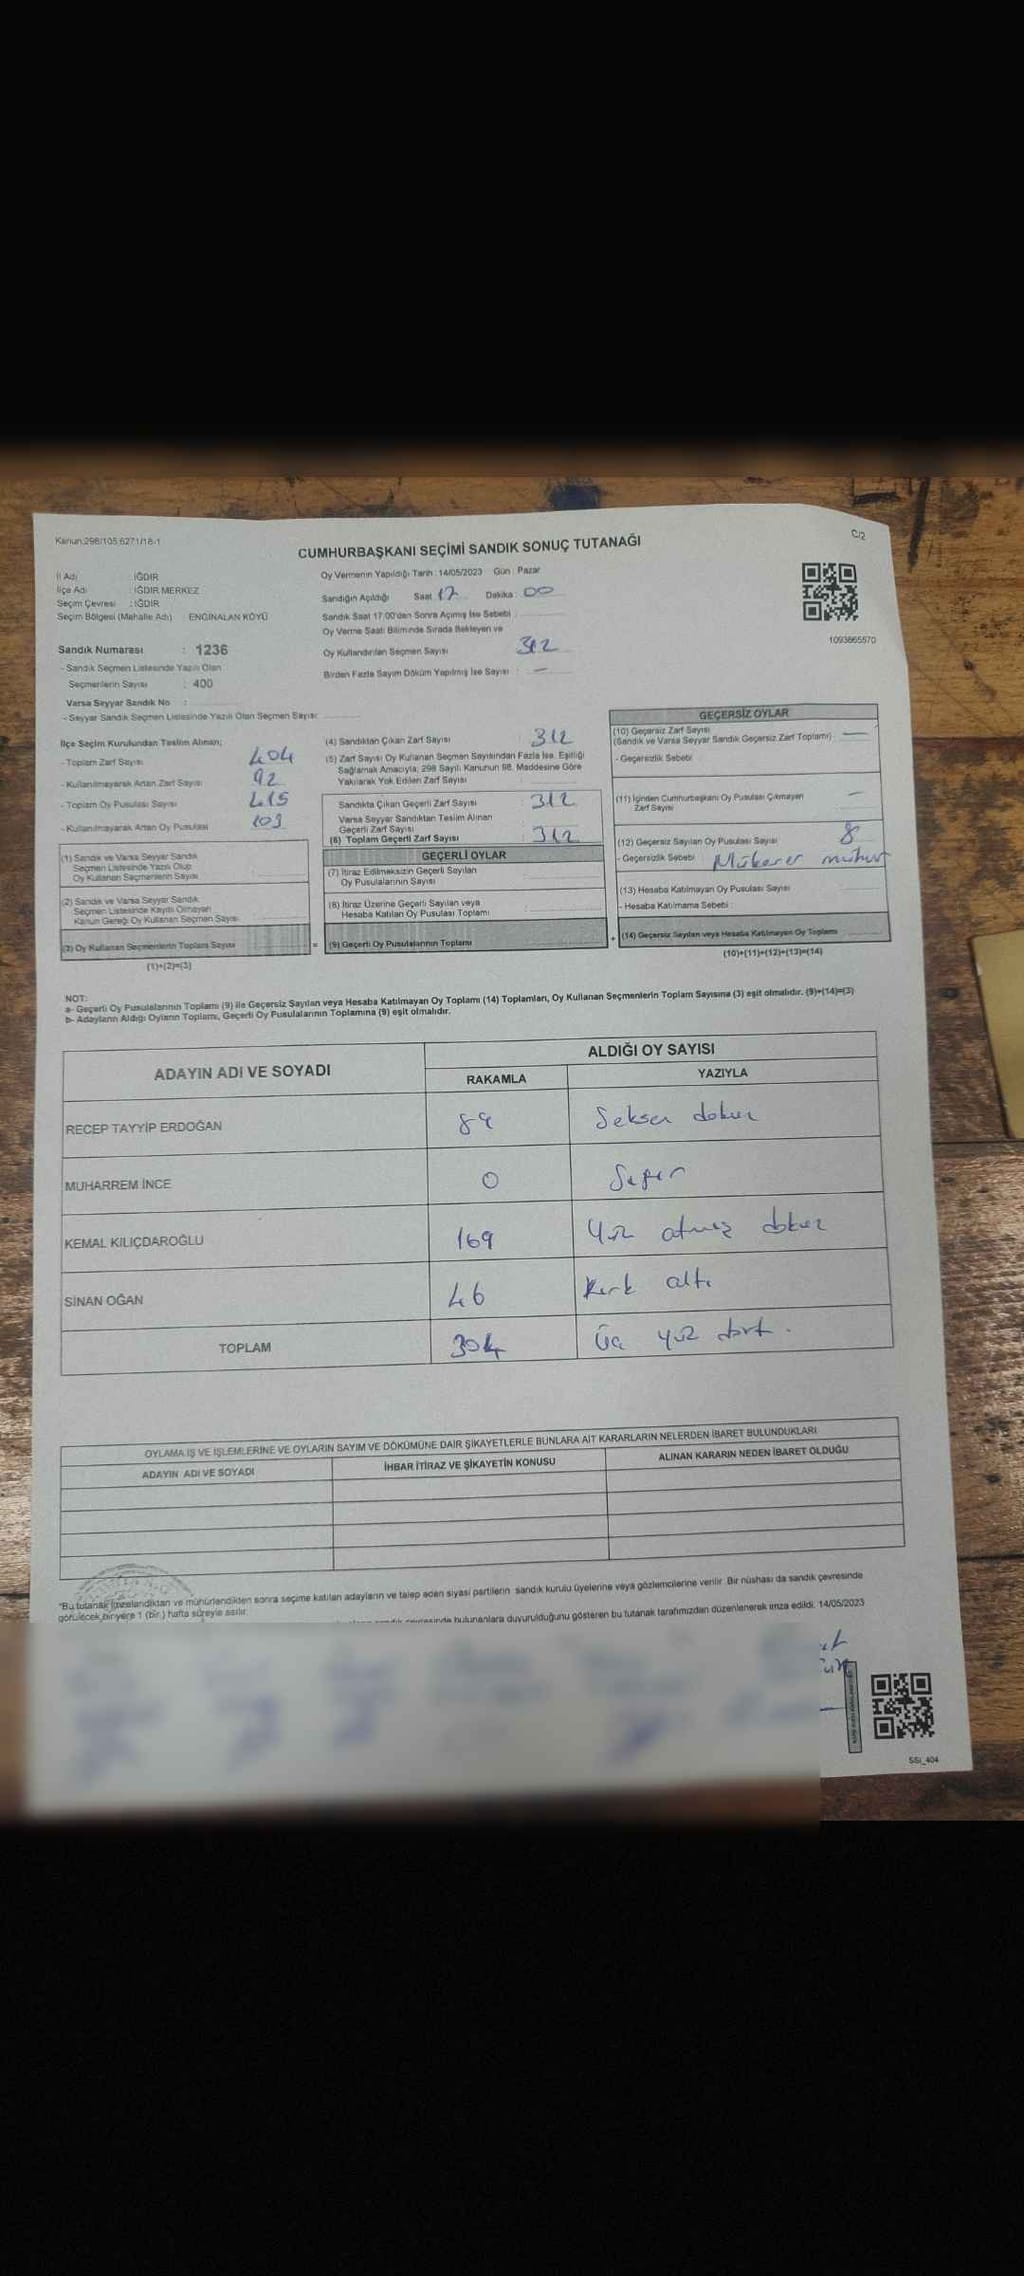 Kanun:298/105,6271/18-1
C/2
CUMHURBAŞKANI SEÇİMİ SANDIK SONUÇ TUTANAĞI
İl Adı : IĞDIR
İlçe Adı : IĞDIR MERKEZ
Seçim Çevresi : IĞDIR
Seçim Bölgesi (Mahalle Adı) ENGİNALAN KÖYÜ
Sandık Numarası : 1236
- Sandık Seçmen Listesinde Yazılı Olan
Seçmenlerin Sayısı : 400
Varsa Seyyar Sandık No :
- Seyyar Sandık Seçmen Listesinde Yazılı Olan Seçmen Sayısı:
Oy Vermenin Yapıldığı Tarih : 14/05/2023 Gün : Pazar
Sandığın Açıldığı Saat 17 Dakika : 00
Sandık Saat 17.00'den Sonra Açımış İse Sebebi :
Oy Verme Saati Bitiminde Sırada Bekleyen ve
Oy Kullandırılan Seçmen Sayısı : 312
Birden Fazla Sayım Döküm Yapılmış İse Sayısı : —
1093865570
İlçe Seçim Kurulundan Teslim Alınan;
- Toplam Zarf Sayısı : 404
- Kullanılmayarak Artan Zarf Sayısı : 92
- Toplam Oy Pusulası Sayısı : 415
- Kullanılmayarak Artan Oy Pusulası : 103
(1) Sandık ve Varsa Seyyar Sandık
Seçmen Listesinde Yazılı Olup
Oy Kullanan Seçmenlerin Sayısı
(2) Sandık ve Varsa Seyyar Sandık
Seçmen Listesinde Kayıtlı Olmayan
Kanun Gereği Oy Kullanan Seçmen Sayısı
(3) Oy Kullanan Seçmenlerin Toplam Sayısı
(1)+(2)=(3)
(4) Sandıktan Çıkan Zarf Sayısı : 312
(5) Zarf Sayısı Oy Kullanan Seçmen Sayısından Fazla İse, Eşitliği
Sağlamak Amacıyla, 298 Sayılı Kanunun 98. Maddesine Göre
Yakılarak Yok Edilen Zarf Sayısı :
Sandıkta Çıkan Geçerli Zarf Sayısı : 312
Varsa Seyyar Sandıktan Teslim Alınan
Geçerli Zarf Sayısı :
(6) Toplam Geçerli Zarf Sayısı : 312
GEÇERLİ OYLAR
(7) İtiraz Edilmeksizin Geçerli Sayılan
Oy Pusulalarının Sayısı
(8) İtiraz Üzerine Geçerli Sayılan veya
Hesaba Katılan Oy Pusulası Toplamı
= (9) Geçerli Oy Pusulalarının Toplamı
GEÇERSİZ OYLAR
(10) Geçersiz Zarf Sayısı
(Sandık ve Varsa Seyyar Sandık Geçersiz Zarf Toplamı) : —
- Geçersizlik Sebebi
(11) İçinden Cumhurbaşkanı Oy Pusulası Çıkmayan
Zarf Sayısı —
(12) Geçersiz Sayılan Oy Pusulası Sayısı 8
- Geçersizlik Sebebi Mükerer mühür
(13) Hesaba Katılmayan Oy Pusulası Sayısı
- Hesaba Katılmama Sebebi :
+ (14) Geçersiz Sayılan veya Hesaba Katılmayan Oy Toplamı
(10)+(11)+(12)+(13)=(14)
NOT:
a- Geçerli Oy Pusulalarının Toplamı (9) ile Geçersiz Sayılan veya Hesaba Katılmayan Oy Toplamı (14) Toplamları, Oy Kullanan Seçmenlerin Toplam Sayısına (3) eşit olmalıdır. (9)+(14)=(3)
b- Adayların Aldığı Oyların Toplamı, Geçerli Oy Pusulalarının Toplamına (9) eşit olmalıdır.
ADAYIN ADI VE SOYADI ALDIĞI OY SAYISI
RAKAMLA YAZIYLA
RECEP TAYYİP ERDOĞAN 89 Seksen dokuz
MUHARREM İNCE 0 Sıfır
KEMAL KILIÇDAROĞLU 169 Yüz atmış dokuz
SİNAN OĞAN 46 Kırk altı
TOPLAM 304 Üç yüz dört.
OYLAMA İŞ VE İŞLEMLERİNE VE OYLARIN SAYIM VE DÖKÜMÜNE DAİR ŞİKAYETLERLE BUNLARA AİT KARARLARIN NELERDEN İBARET BULUNDUKLARI
ADAYIN ADI VE SOYADI İHBAR İTİRAZ VE ŞİKAYETİN KONUSU ALINAN KARARIN NEDEN İBARET OLDUĞU
"Bu tutanak imzalandıktan ve mühürlendikten sonra seçime katılan adayların ve talep eden siyasi partilerin sandık kurulu üyelerine veya gözlemcilerine verilir. Bir nüshası da sandık çevresinde
görülecek bir yere 1 (bir ) hafta süreyle asılır.
bulunanlara duyurulduğunu gösteren bu tutanak tarafımızdan düzenlenerek imza edildi. 14/05/2023
SSı_404